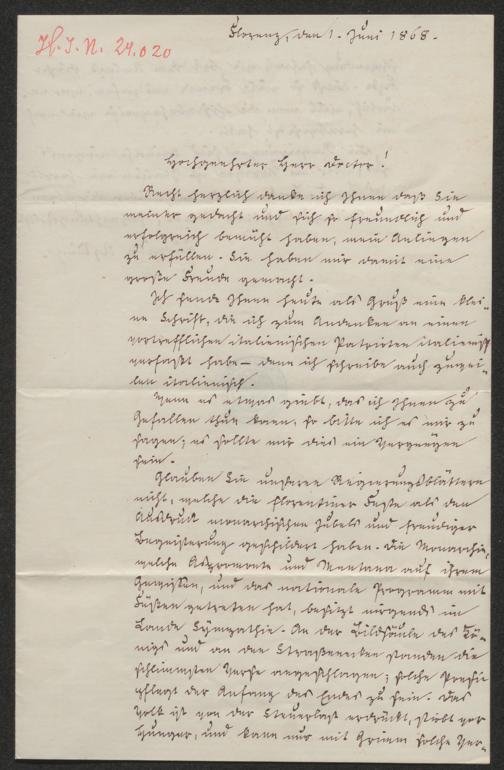 H. I. N. 24.020
Florenz, den 1. Juni 1868.
Hochgeehrter Herr Doctor!
Recht herzlich danke ich Ihnen daß Sie
meiner gedacht und sich so freundlich und
erfolgreich bemüht haben, mein Anliegen
zu erfüllen. Sie haben mir damit eine
große Freude gemacht.
Ich sende Ihnen heute als Gruß eine klei-
ne Schrift, die ich zum Andenken an einen
vortrefflichen italienischen Patrioten italienisch
verfaßt habe – denn ich schreibe auch zuwei-
len italienisch.
Wenn es etwas giebt, das ich Ihnen zu
Gefallen thun kann, so bitte ich es mir zu
sagen; es sollte mir dies ein Vergnügen
sein.
Glauben Sie unseren Regierungsblättern
nicht, welche die florentiner Feste als den
Ausdruck monarchischen Jubels und freudiger
Begeisterung geschildert haben. Die Monarchie,
welche Aspromonte und Mentana auf ihrem
Gewissen, und das nationale Programm mit
Füßen getreten hat, besitzt nirgends im
Lande Sympathie. An der Bildsäule des Kö-
nigs und an den Straßenecken standen die
schlimmsten Verse angeschlagen; solche Poesie
pflegt der Anfang des Endes zu sein. Das
Volk ist von der Steuerlast erdrückt, stirbt vor
Hunger, und kann nur mit Grimm solche Ver-